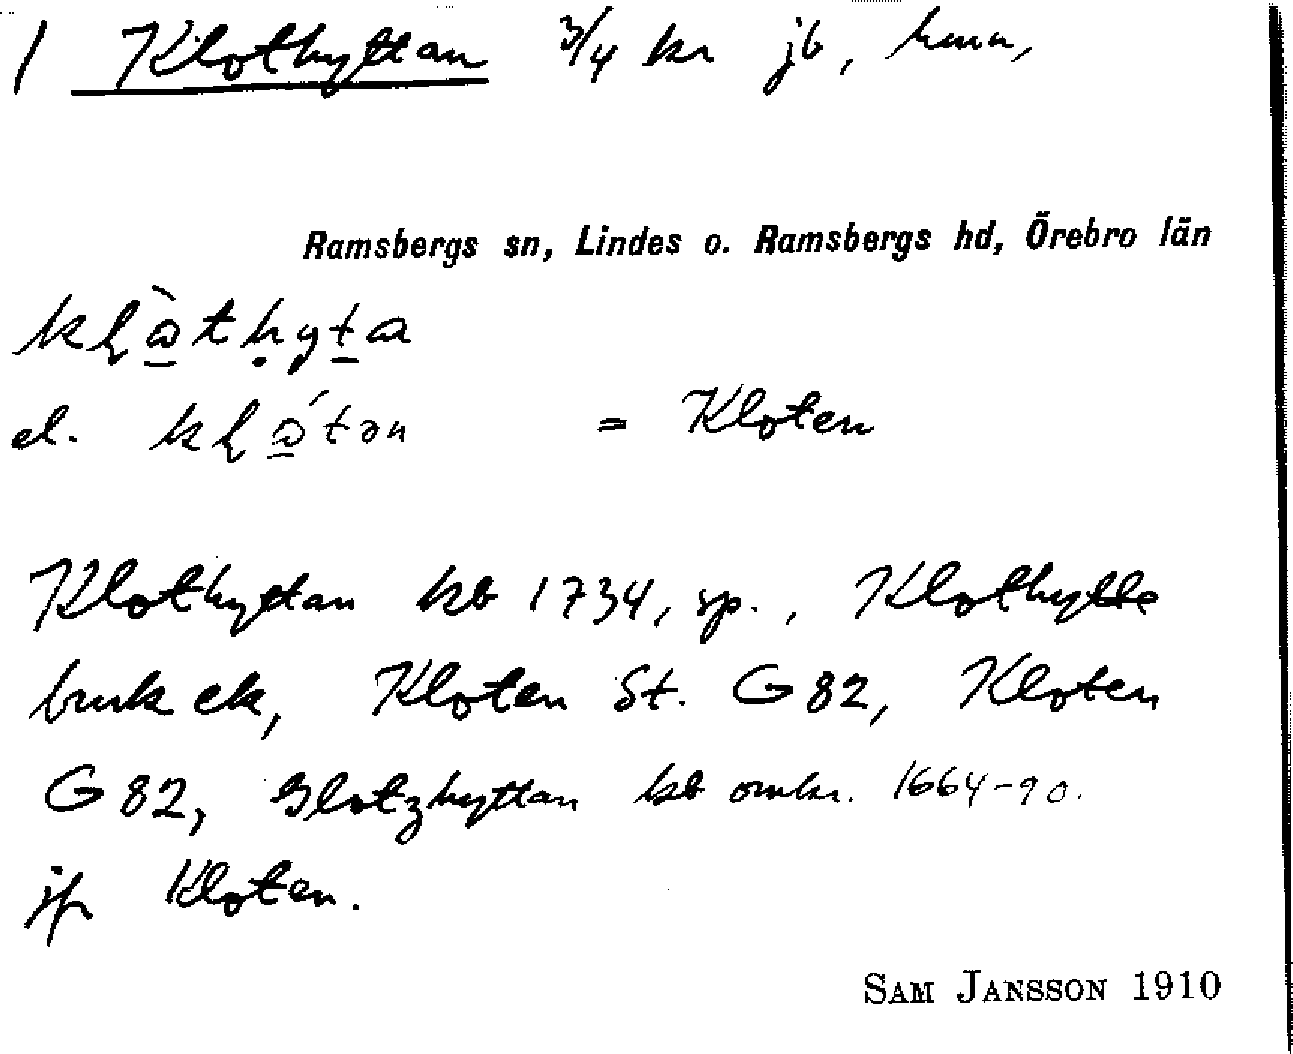 1 Klothyttan 3/4 kr jb, hmn,
Ramsbergs sn, Lindes o. Ramsbergs hd, Örebro län
el. = Kloten
Klothyttan kb 1734, sp., Klothytte
bruk ek, Kloten St. G 82, Kloten
G 82, Glotzhyttan kb omkr. 1664-90.
jfr Kloten.
SAM JANSSON 1910